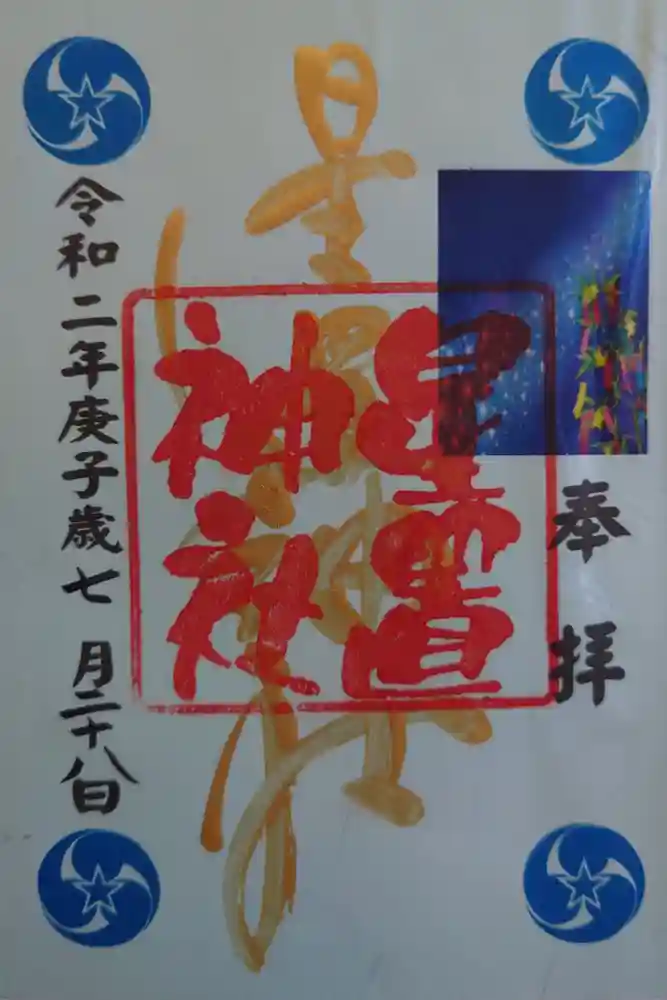 奉拝
星置神社
星置神社
令和二年庚子歳七月二十八日